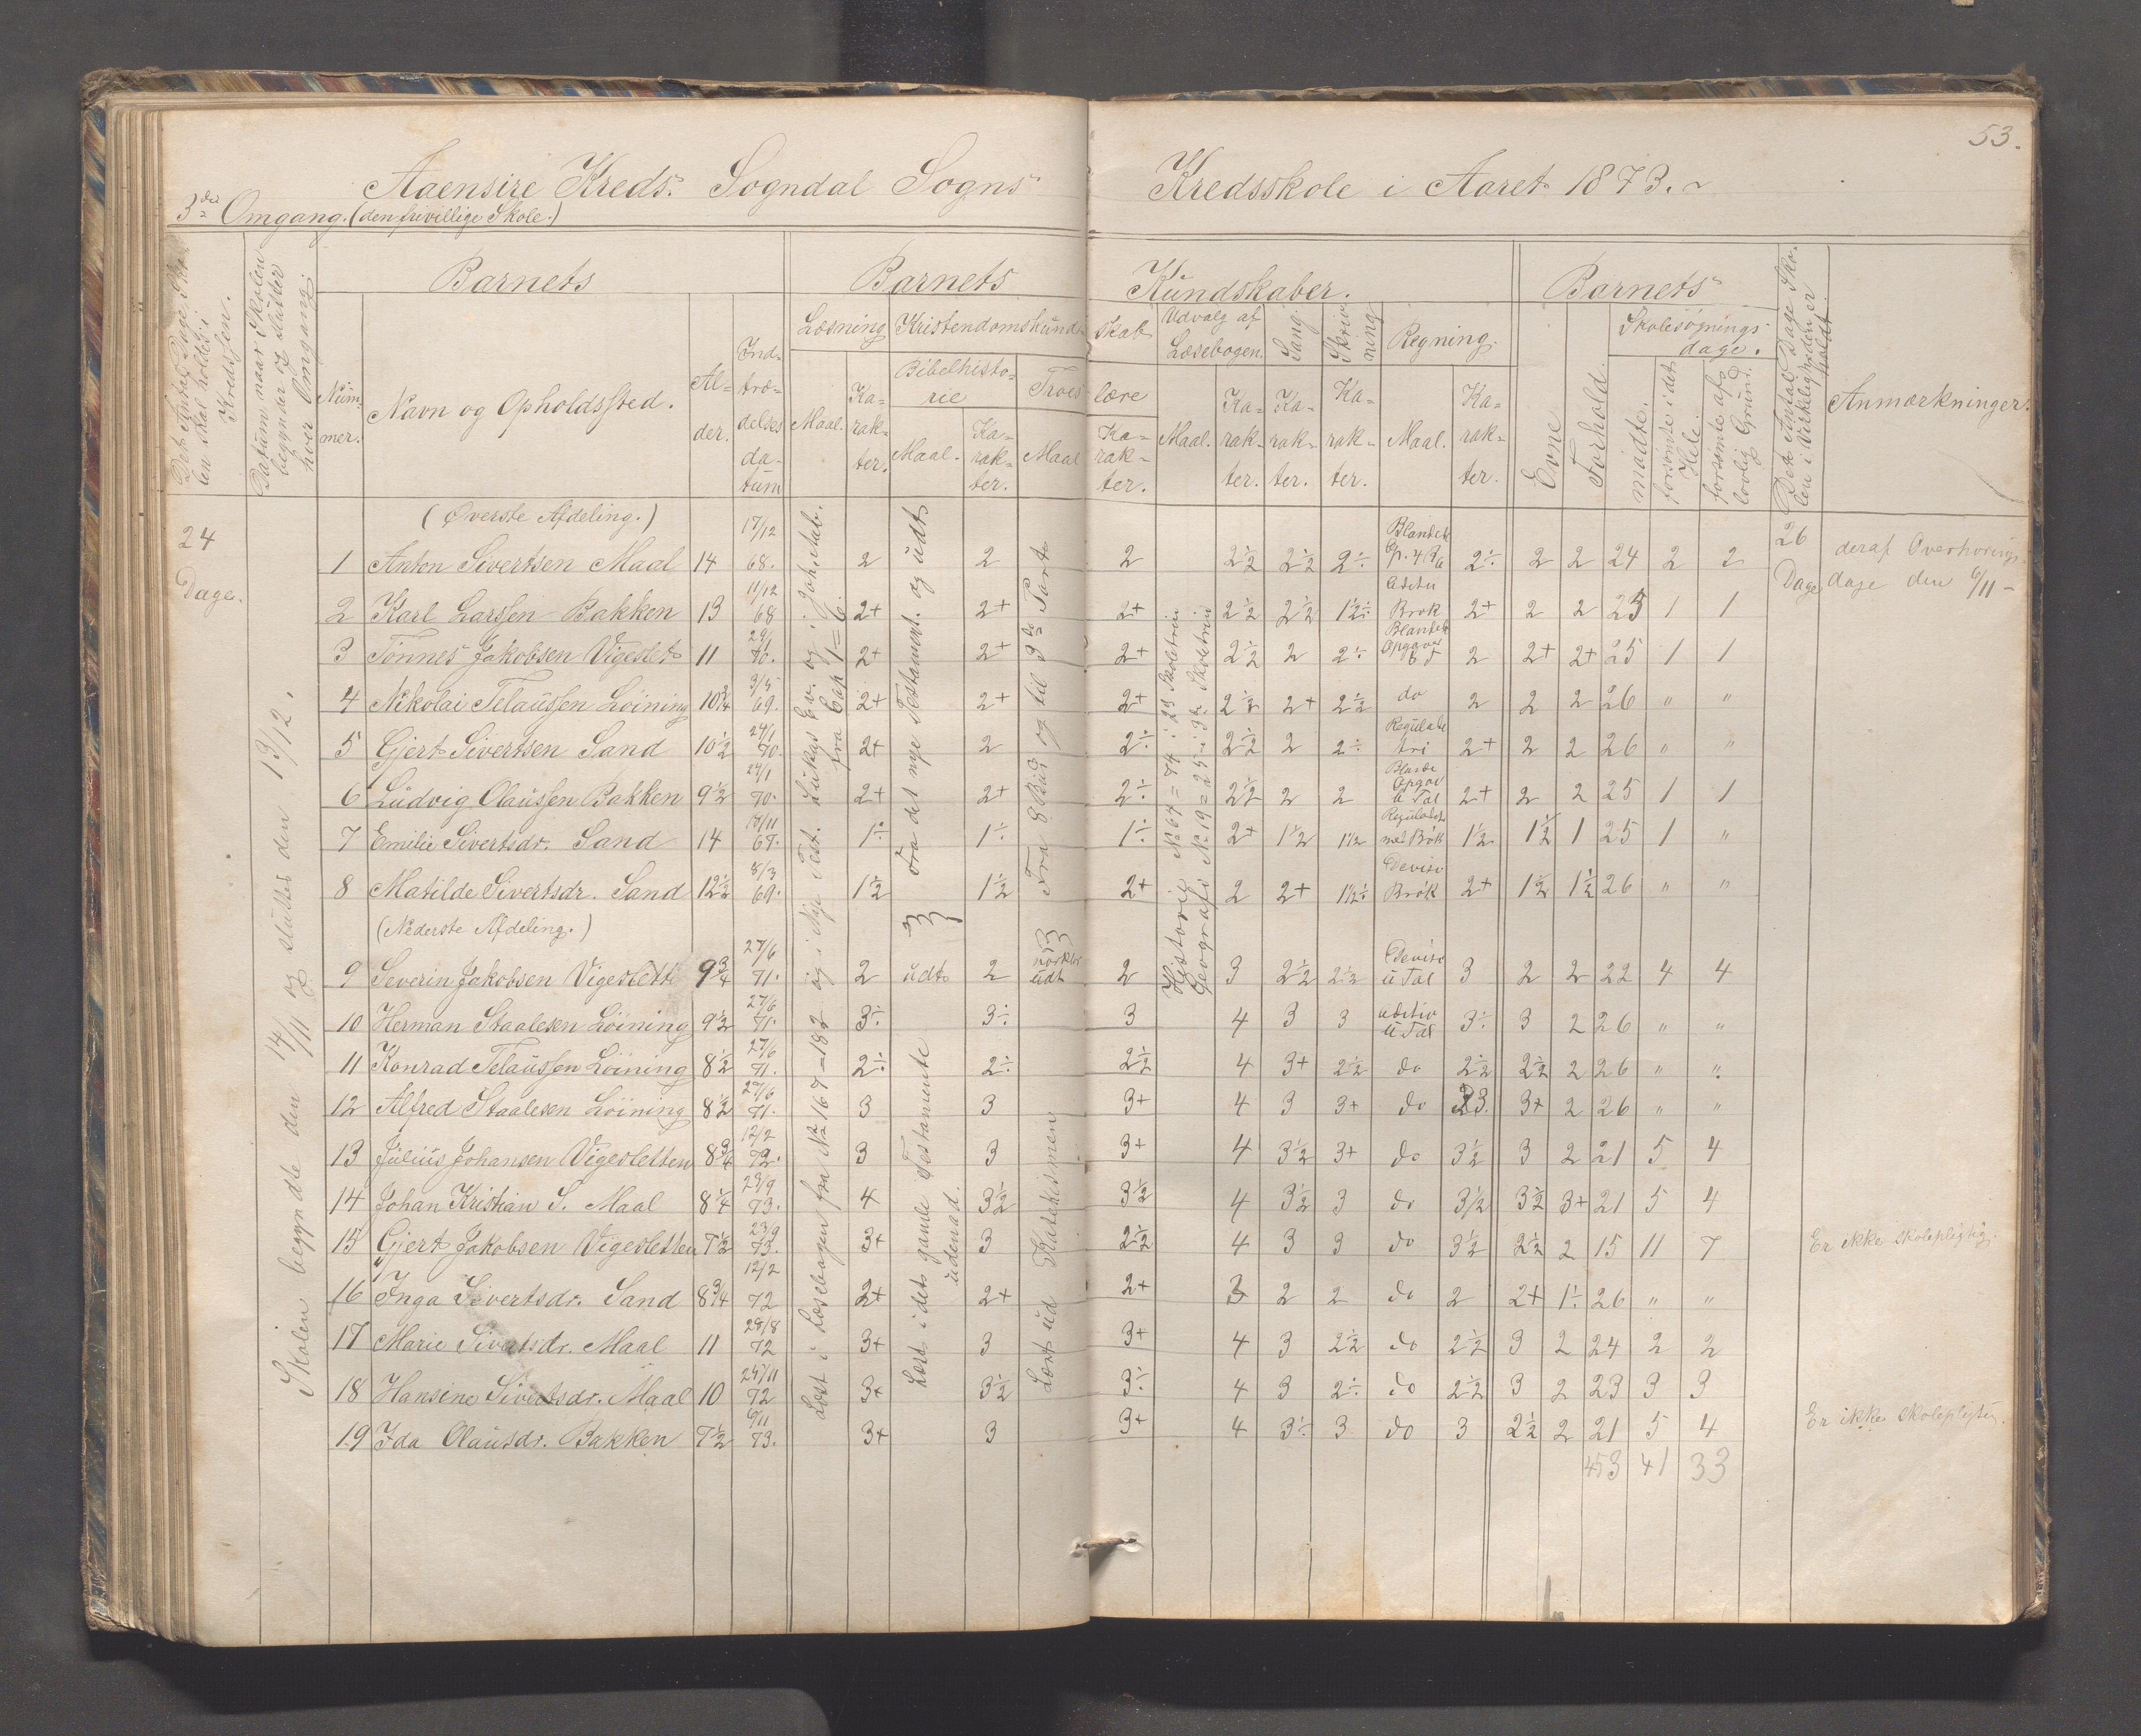 53.
Aaensire Kreds. Sogndal Sogns Kredsskole i Aaret 1873.
3die Omgang. (den frivillige Skole.)
Det Antal Dage Skolen skal holdes i Kredsen.
Datum naar Skolen begynder og slutter hver Omgang.
Barnets
Barnets Kundskaber.
Barnets
Det Antal Dage Skolen i Virkeligheden er holdt
Anmærkninger.
Nummer.
Navn og Opholdssted.
Alder.
Indtrædelsesdatum
Læsning
Kristendomskundskab
Udvalg af Læsebogen.
Sang.
Skrivning
Regning.
Evne
Forhold.
Skolesøgningsdage.
Bibelhistorie
Troeslære
Maal. Karakter. Maal. Karakter. Maal Karakter. Maal. Karakter. Karakter. Karakter. Maal. Karakter.
mødte.
forsømte i det Hele.
forsømte af lovlig Grund.
24 Dage.
Skolen begynde den 14/11 og sluttes den 13/12.
(Øverste Afdeling.)
26 Dage
deraf Overhørings
dage den 6/11 –
1 Anton Sivertsen Maal 14 17/12 68. 2 2 2 2½ 2½ 2÷ Blandede 2÷ 2 2 24 2 2
2 Karl Larssen Bakken 13 11/12 68 2+ 2+ 2+ 2½ 2½ 1½÷ Brøk 2+ 2 2 25 1 1
3 Tønnes Jakobsen Vigeslet 11 24/1 70. 2+ 2+ 2+ 2½ 2 2÷ Blandede Opgaver 2 2+ 2+ 25 1 1
4 Nikolai Telaussen Løining 10¾ 3/5 69. 2+ 2+ 2+ 2½ 2+ 2½ do 2 2 2 26 " "
5 Gjert Sivertsen Sand 10½ 24/1 70. 2+ 2 2÷ 2½ 2 2÷ Reguladetri 2+ 2 2 26 " "
6 Ludvig Olaussen Bakken 9½ 24/1 70. 2+ 2+ 2÷ 2½ 2 2 Blande Opgav u Tal 2+ 2 2 25 1 1
7 Emilie Sivertsdr. Sand 14 18/11 67. 1÷ 1÷ 1÷ 2+ 1½ 1½ med Brøk 1½ 1½ 1 25 1 "
8 Matilde Sivertsdr. Sand 12½ 8/3 69. 1½ 1½ 2+ 2 2+ 1½÷ Brøk 2+ 1½ 1½ 26 " "
(Nederste Afdeling.)
9 Severin Jakobsen Vigeslett 9¾ 27/6 71. 2 udt 2 udt 2 3 2½ 2½ u Tal 3 2 2 22 4 4
10 Herman Staalesen Løining 9½ 27/6 71. 3÷ 3÷ 3 4 3 3 u Tal 3÷ 3 2 26 " "
11 Konrad Telaussen Løining 8½ 27/6 71. 2÷ 2÷ 2½ 4 3+ 2½ do 2½ 2½ 2 26 " "
12 Alfred Staalesen Løining 8½ 27/6 71. 3 3 3+ 4 3 3+ do 3. 3+ 2 26 " "
13 Julius Johansen Vigesletten 8¾ 12/2 72. 3 3 3+ 4 3½ 3+ do 3½ 3 2 21 5 4
14 Johan Kristian S. Maal 8¼ 29/9 73. 4 3½ 3½ 4 3½ 3 do 3½ 3½ 3+ 21 5 4
15 Gjert Jakobsen Vigesletten 7½ 23/9 73. 3+ 3 2½ 4 3 3 do 3½ 2½ 2 15 11 7 Er ikke skolepligtig.
16 Inga Sivertsdr. Sand 8¾ 12/2 72 2+ 2+ 2+ 3 2 2 do 2 2+ 1÷ 26 " "
17 Marie Sivertsdr. Maal 11 28/8 72 3+ 3 3+ 4 3 2½ do 2½ 3 2 24 2 2
18 Hansine Sivertsdr. Maal 10 25/11 72 3+ 3½ 3÷ 4 3 2÷ do 2½ 3 2 23 3 3
19 Ida Olausdr. Bakken 7½ 6/11 73. 3+ 3 3+ 4 3÷ 3 do 3 2½ 2 21 5 4 Er ikke skolepligtig.
453 41 33
Læst i Læsebogen fra No 167–182 og i Nye Test. Lukas Ev. og i Joh. Aab. fra Cap 1–6.
Fra det nye Testament. og udt
Lært i det gamle Testamente udenad.
Fra 8 Bud og til 3die Part
Lært ud Katekismen
Historie No 64–74 i 2d Skoletrin
Geografi No 19–25 i 3die Skoletrin